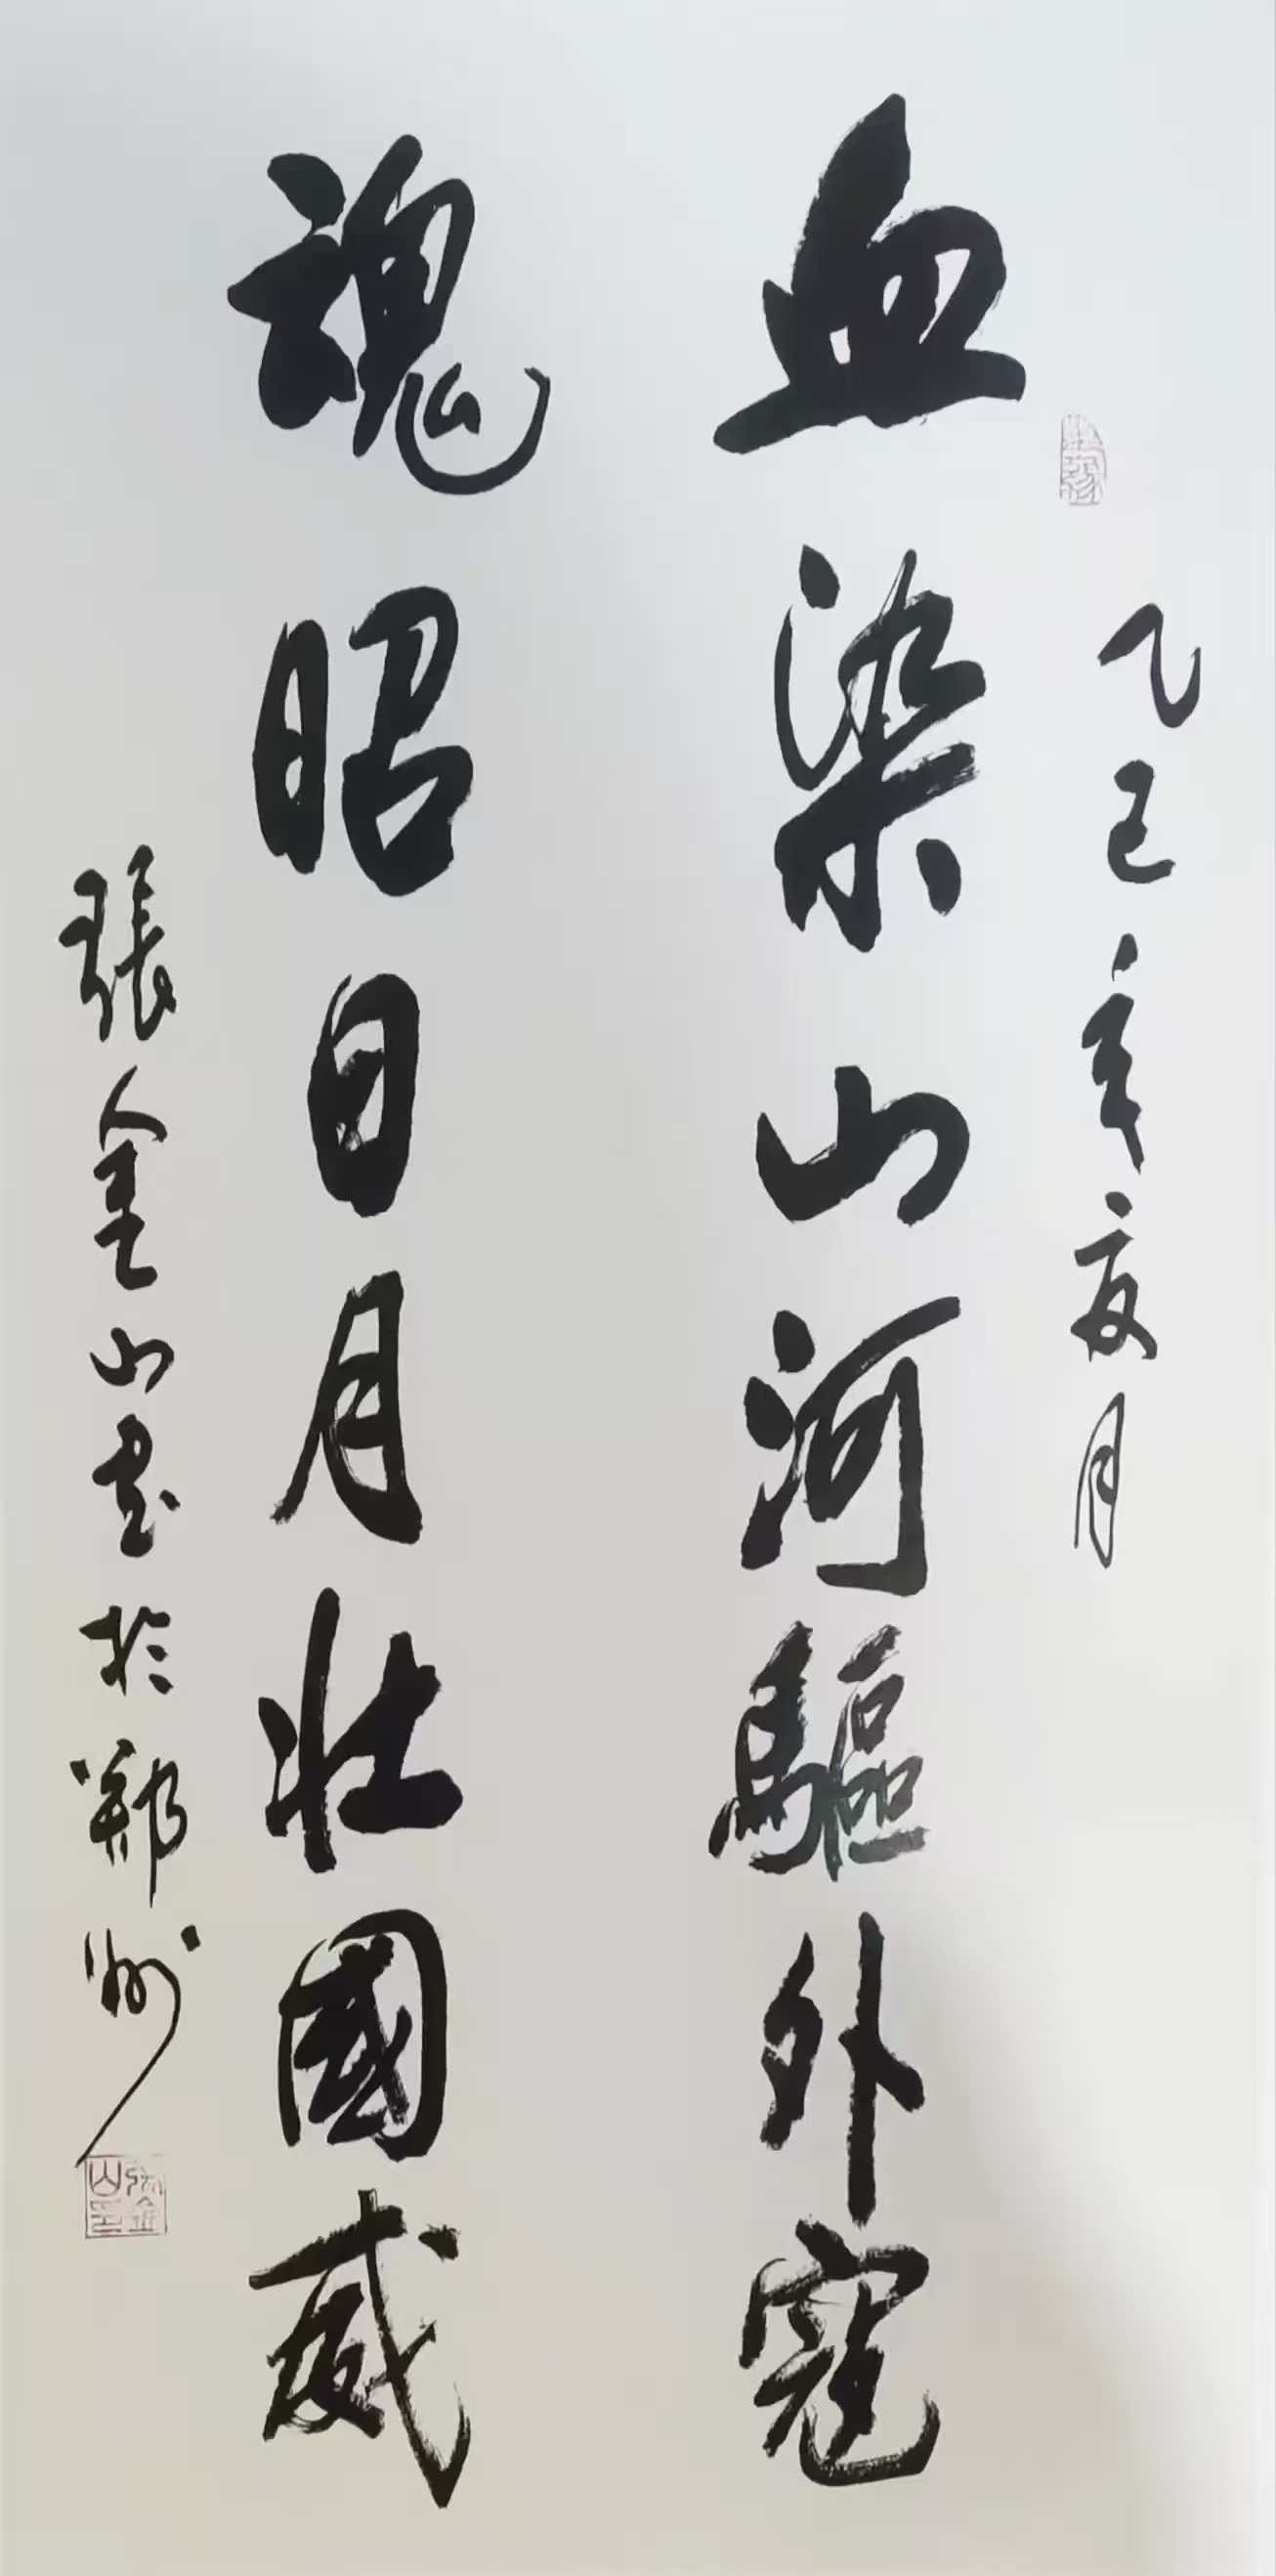 乙巳年夏月
血染山河驅外寇
魂昭日月壯國威
張金山書於鄭州
張金山印